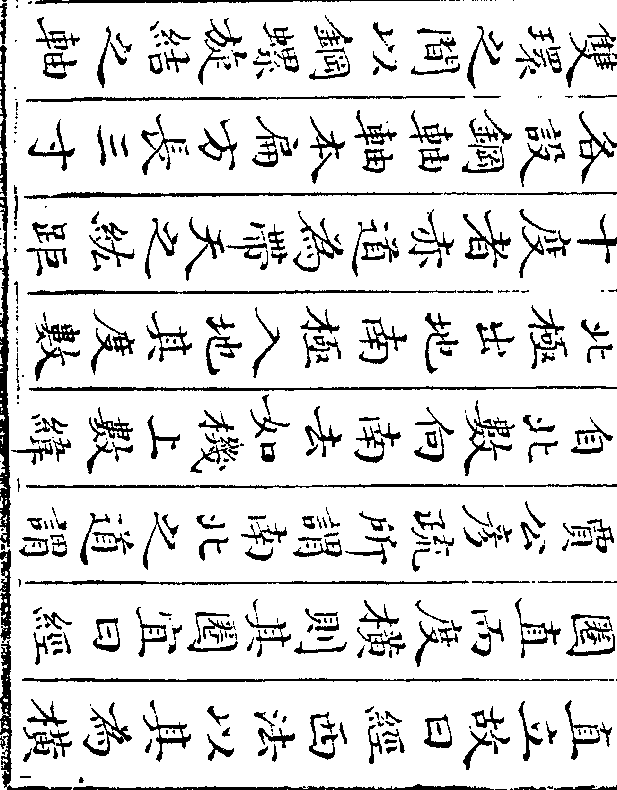 直立故曰經西法以其為橫
圈直而度橫則其圈宜曰經
賈公彥疏所謂南北之道謂
自北數向南去如機上數緯
北極出地南極入地其度數
十度者赤道為帶天之紘距
各設鋼軸軸本扁方長三寸
雙環之間以鋼螺旋結之軸